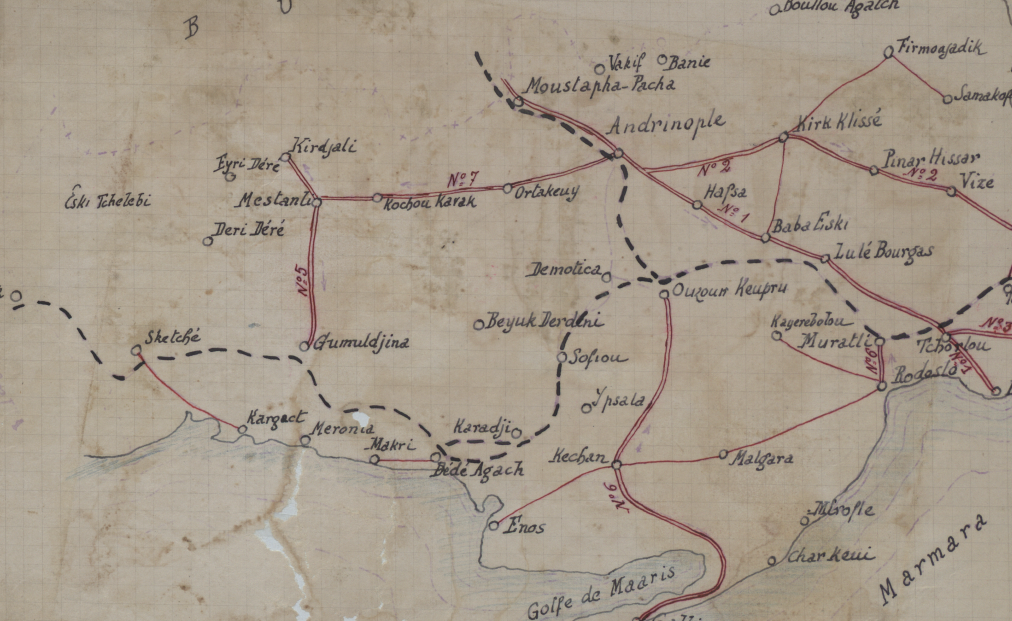 B
U
Boullou Agatch
Firmogjadik
Vakif
Banie
Moustapha-Pacha
Andrinople
Kirk Klissé
Kirdjali
Eyri Déré
Nº 7
Nº 2
Pinar Hissar
Nº 2
Vize
Eski Tchelebi
Mestanli
Kochou Kavak
Ortakeuy
Hafsa
Nº 1
Deri Déré
Baba Eski
Lulé Bourgas
Demotica
Nº 5
Ouzoun Keupru
Beyuk Derdéni
Sketché
Gumuldjina
Sofiou
Muratli
Tchorlou
Nº 3
Nº 9
Nº 1
Rodosto
Ypsala
Kargact
Meronia
Karadji
Makri
Dédé Agach
Kechan
Malgara
Nº 6
Enos
Mirofte
Charkeui
Marmara
Golfe de Maaris